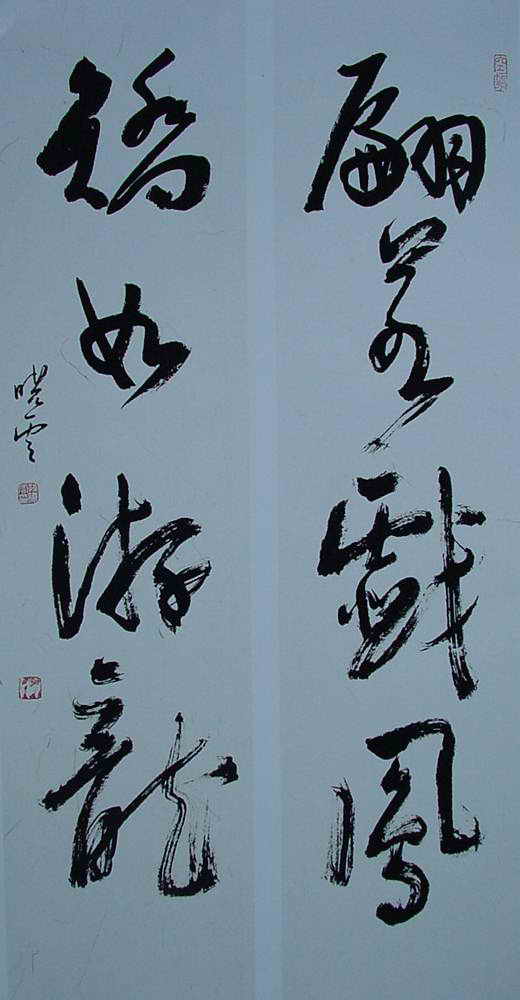 翩若戲鳳
矯如游龍
曉雲